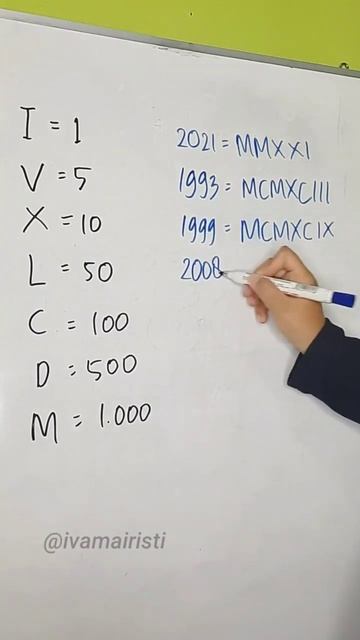 I = 1
V = 5
X = 10
L = 50
C = 100
D = 500
M = 1.000
2021 = MMXXI
1993 = MCMXCIII
1999 = MCMXCIX
2008
@ivamairisti